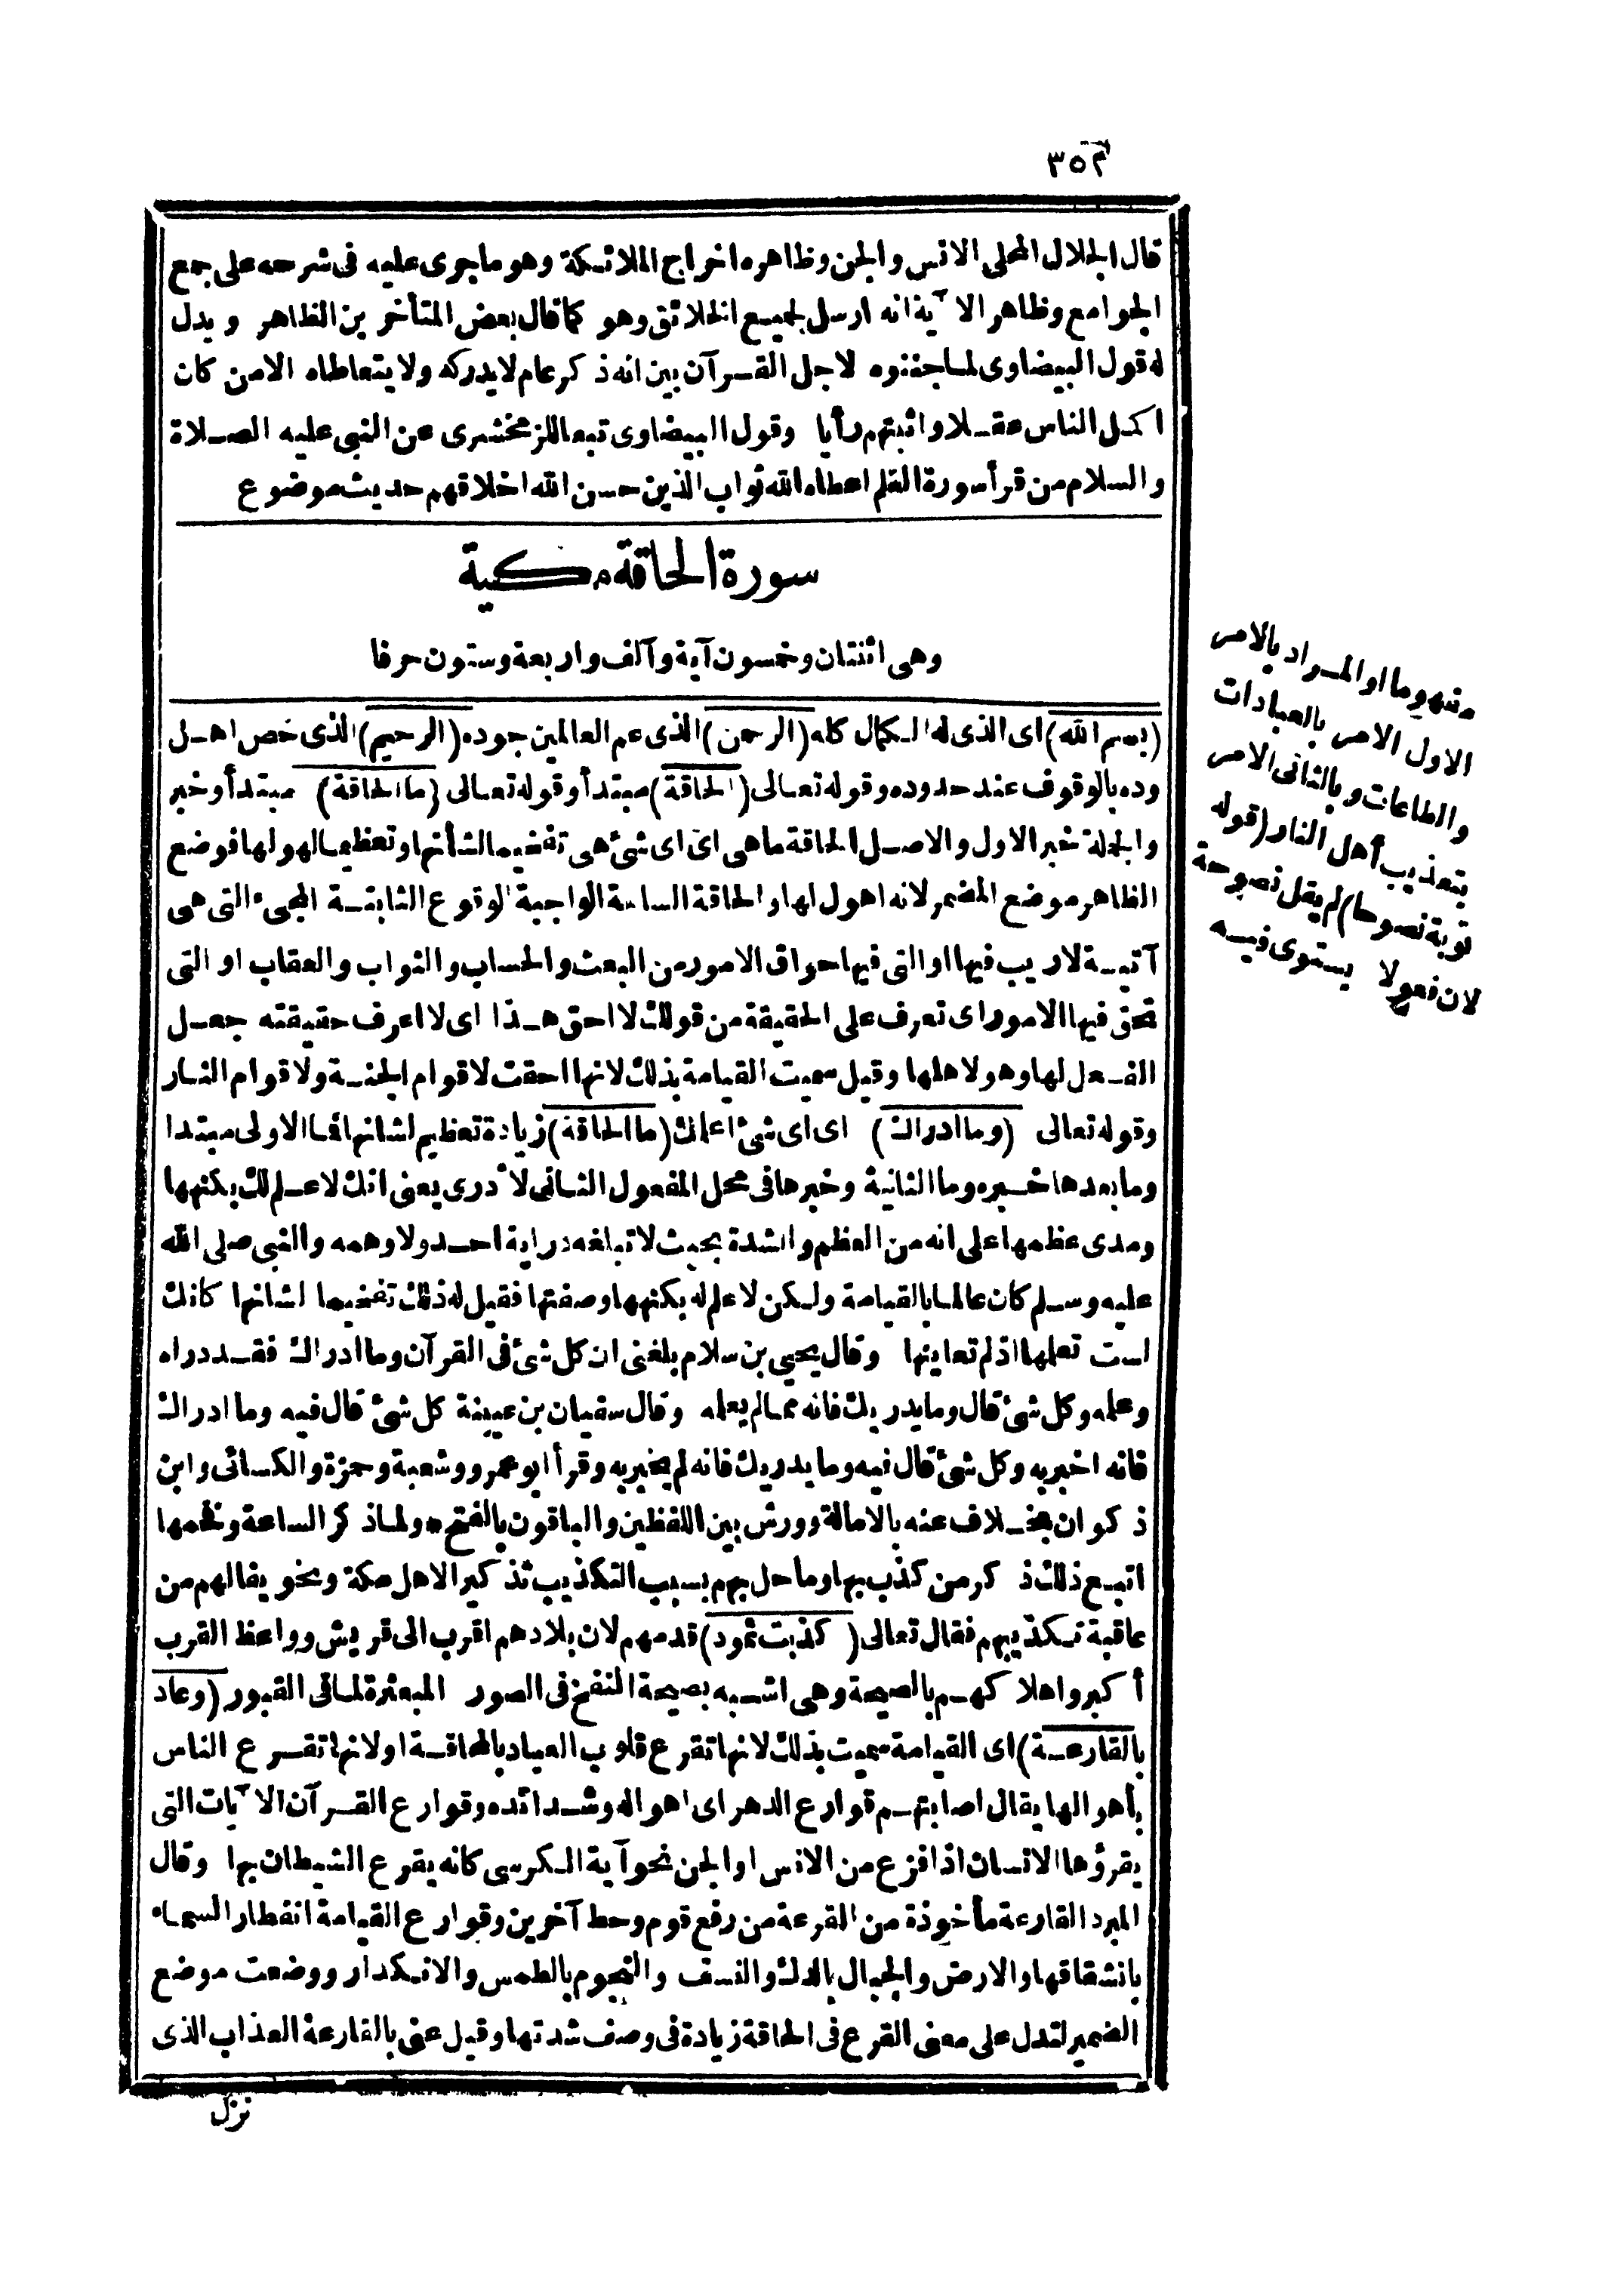 ٣٥٣
قال الجلال المحلى الانس والجن وظاهره اخراج الملائكة وهو ما جرى عليه فى شرحه على جمع
الجوامع وظاهر الآية انه ارسل لجميع الخلائق وهو كما قال بعض المتأخرين الظاهر ويدل
له قول البيضاوى لما جننوه لاجل القرآن بين انه ذكر عام لا يدركه ولا يتعاطاه الامن كان
اكمل الناس عقلا واثبتهم رأيا وقول البيضاوى تبعا للزمخشرى عن النبى عليه الصلاة
والسلام من قرأ سورة القلم اعطاه الله ثواب الذين حسن الله اخلاقهم حديث موضوع
سورة الحاقة مكية
وهى اثنتان وخمسون آية وآلف واربعة وستون حرفا
(بسم الله) اى الذى له الكمال كله (الرحمن) الذى عم العالمين جوده (الرحيم) الذى خص اهل
وده بالوقوف عند حدوده وقوله تعالى (الحاقة) مبتدأ وقوله تعالى (ما الحاقة) مبتدأ وخبر
والجلة خبر الاول والاصل الحاقة ما هى اى اى شئ هى تفخيما لشأنها وتعظيما لهولها فوضع
الظاهر موضع المضمر لانه اهول لها والحاقة الساعة الواجبة الوقوع الثابتة المجىء التى هى
آتية لا ريب فيها او التى فيها حواق الامور من البعث والحساب والثواب والعقاب او التى
تحق فيها الامور اى تعرف على الحقيقة من قولك لا احق هذا اى لا اعرف حقيقته جعل
الفعل لها وهو لاهلها وقيل سميت القيامة بذلك لانها احقت لاقوام الجنة ولاقوام النار
وقوله تعالى (وما ادراك) اى اى شئ اعلمك (ما الحاقة) زيادة تعظيم لشانها فما الاولى مبتدا
وما بعدها خبره وما الثانية وخبرها فى محل المفعول الثانى لأدرى يعنى انك لا علم لك بكنهها
ومدى عظمها على انه من العظم والشدة بحيث لا تبلغه دراية احد ولا وهمه والنبى صلى الله
عليه وسلم كان عالما بالقيامة ولكن لا علم له بكنهها وصفتها فقيل له ذلك تفخيما لشانها كانك
لست تعلمها اذ لم تعاينها وقال يحيى بن سلام بلغنى ان كل شئ فى القرآن وما ادراك فقد دراه
وعلمه وكل شئ قال وما يدريك فانه مما لم يعلمه وقال سفيان بن عيينة كل شئ قال فيه وما ادراك
فانه اخبر به وكل شئ قال فيه وما يدريك فانه لم يخبر به وقرأ ابو عمرو وشعبة وحمزة والكسائى وابن
ذكوان بخلاف عنه بالامالة وورش بين اللفظين والباقون بالفتح * ولما ذكر الساعة وفخمها
اتبع ذلك ذكر من كذب بها وما حل بهم بسبب التكذيب تذكيرا لاهل مكة وتخويفا لهم من
عاقبة تكذيبهم فقال تعالى (كذبت ثمود) قدمهم لان بلادهم اقرب الى قريش وواعظ القرب
أكبر واهلاكهم بالصيحة وهى اشبه بصيحة النفخ فى الصور المبعثرة لما فى القبور (وعاد
بالقارعة) اى القيامة سميت بذلك لانها تقرع قلوب العباد بالمخافة او لانها تقرع الناس
بأهوالها يقال اصابتهم قوارع الدهر اى اهواله وشدائده وقوارع القرآن الآيات التى
يقرؤها الانسان اذا فزع من الانس او الجن نحو آية الكرسى كانه يقرع الشيطان بها وقال
المبرد القارعة مأخوذة من القرعة من رفع قوم وحط آخرين وقوارع القيامة انفطار السماء
بانشقاقها والارض والجبال بالدك والنسف والنجوم بالطمس والانكدار ووضعت موضع
الضمير لتدل على معنى القرع فى الحاقة زيادة فى وصف شدتها وقيل عنى بالقارعة العذاب الذى
نزل
مفهوما او المراد بالامر
الاول الامر بالعبادات
والطاعات وبالثانى الامر
بتعذيب أهل النار (قوله
توبة نصوحا) لم يقل نصوحة
لان فعولا يستوى فيه